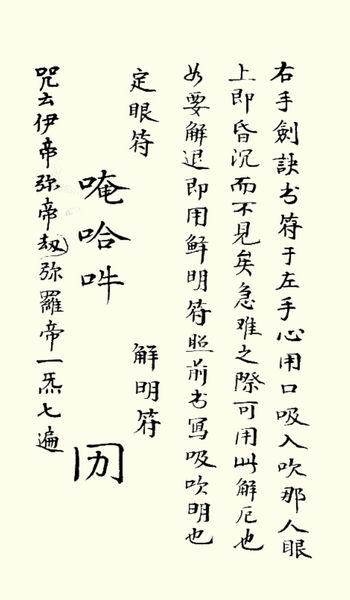 右手劍訣书符于左手心用口吸入吹那人眼
上即昏沉而不見矣急难之際可用此解厄也
如要解退即用鲜明符照前书写吸吹明也
定眼符
唵哈吽
解明符
咒云伊帝弥帝劫弥羅帝一炁七遍